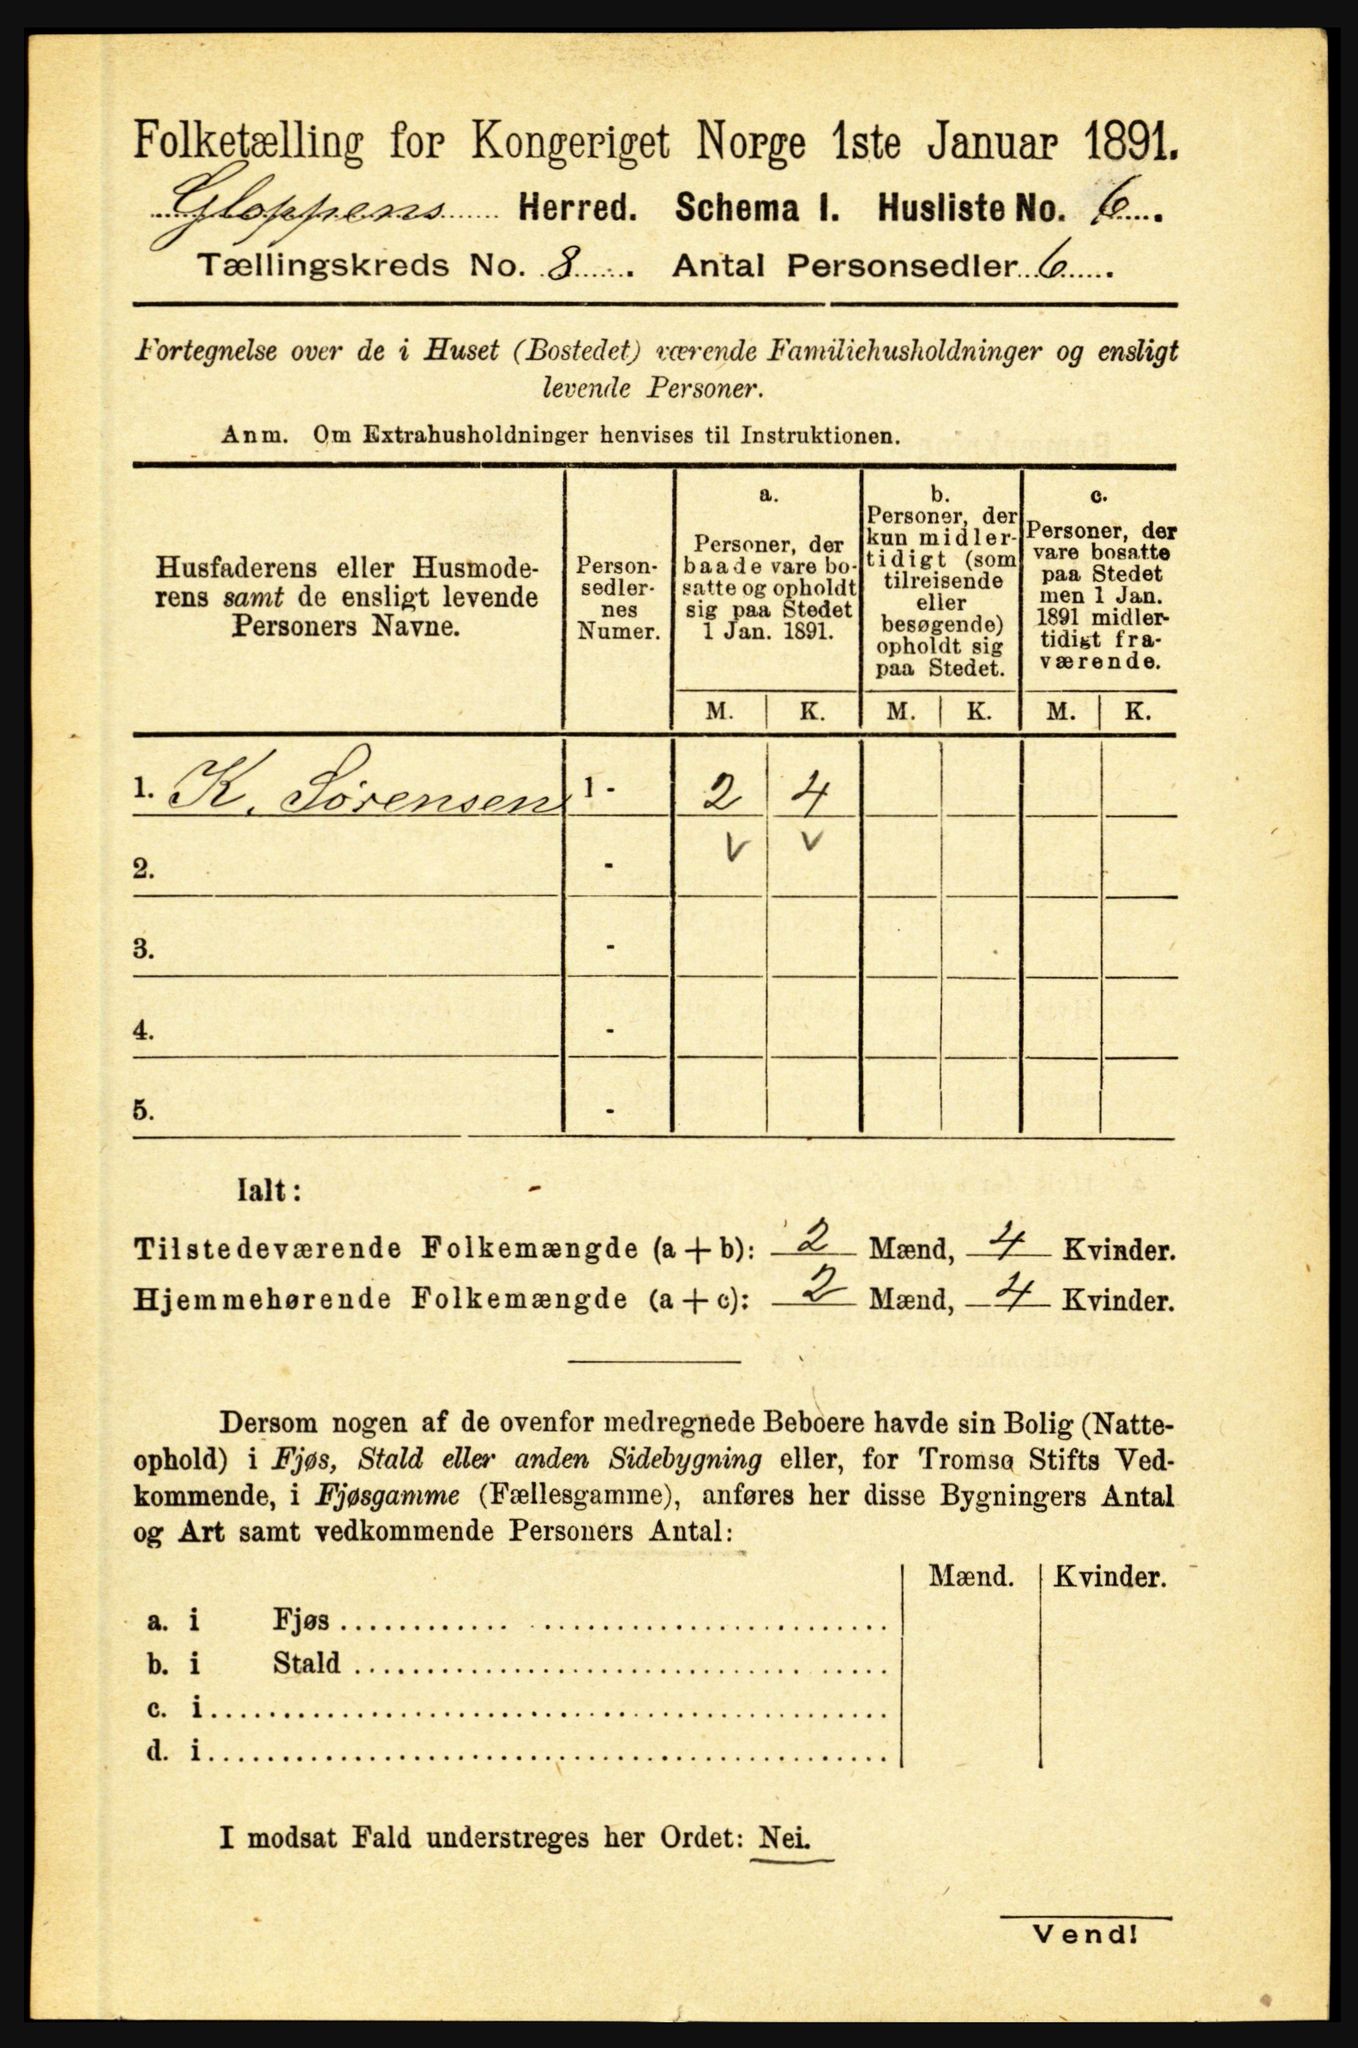 Folketælling for Kongeriget Norge 1ste Januar 1891.
Gloppens Herred. Schema I. Husliste No. 6.
Tællingskreds No. 8. Antal Personsedler 6.
Fortegnelse over de i Huset (Bostedet) værende Familiehusholdninger og ensligt
levende Personer.
Anm. Om Extrahusholdninger henvises til Instruktionen.
Husfaderens eller Husmode-
rens samt de ensligt levende
Personers Navne.
Person-
sedler-
nes
Numer.
a.
Personer, der
baade vare bo-
satte og opholdt
sig paa Stedet
1 Jan. 1891.
b.
Personer, der
kun midler-
tidigt (som
tilreisende
eller
besøgende)
opholdt sig
paa Stedet.
c.
Personer, der
vare bosatte
paa Stedet
men 1 Jan.
1891 midler-
tidigt fra-
værende.
M. K. M. K. M. K.
1. K. Sørensen 1 - 2 4
2. - v v
3. -
4. -
5. -
Ialt: -
Tilstedeværende Folkemængde (a + b): 2 Mænd, 4 Kvinder.
Hjemmehørende Folkemængde (a + c): 2 Mænd, 4 Kvinder.
Dersom nogen af de ovenfor medregnede Beboere havde sin Bolig (Natte-
ophold) i Fjøs, Stald eller anden Sidebygning eller, for Tromsø Stifts Ved-
kommende, i Fjøsgamme (Fællesgamme), anføres her disse Bygningers Antal
og Art samt vedkommende Personers Antal:
Mænd. Kvinder.
a. i Fjøs
b. i Stald
c. i
d. i
I modsat Fald understreges her Ordet: Nei.
Vend!